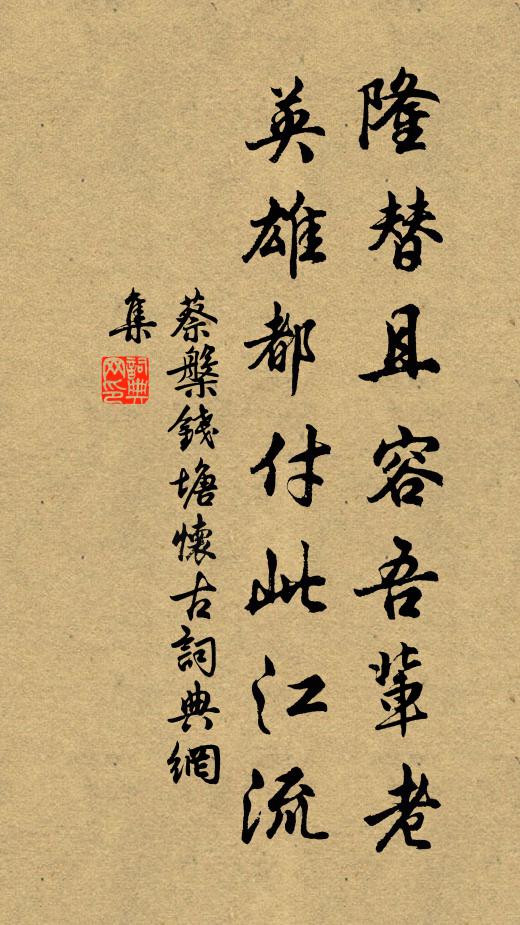 隆替且容吾輩老
英雄都付此江流
蔡槃錢塘懷古詞典網
集
詞典網印